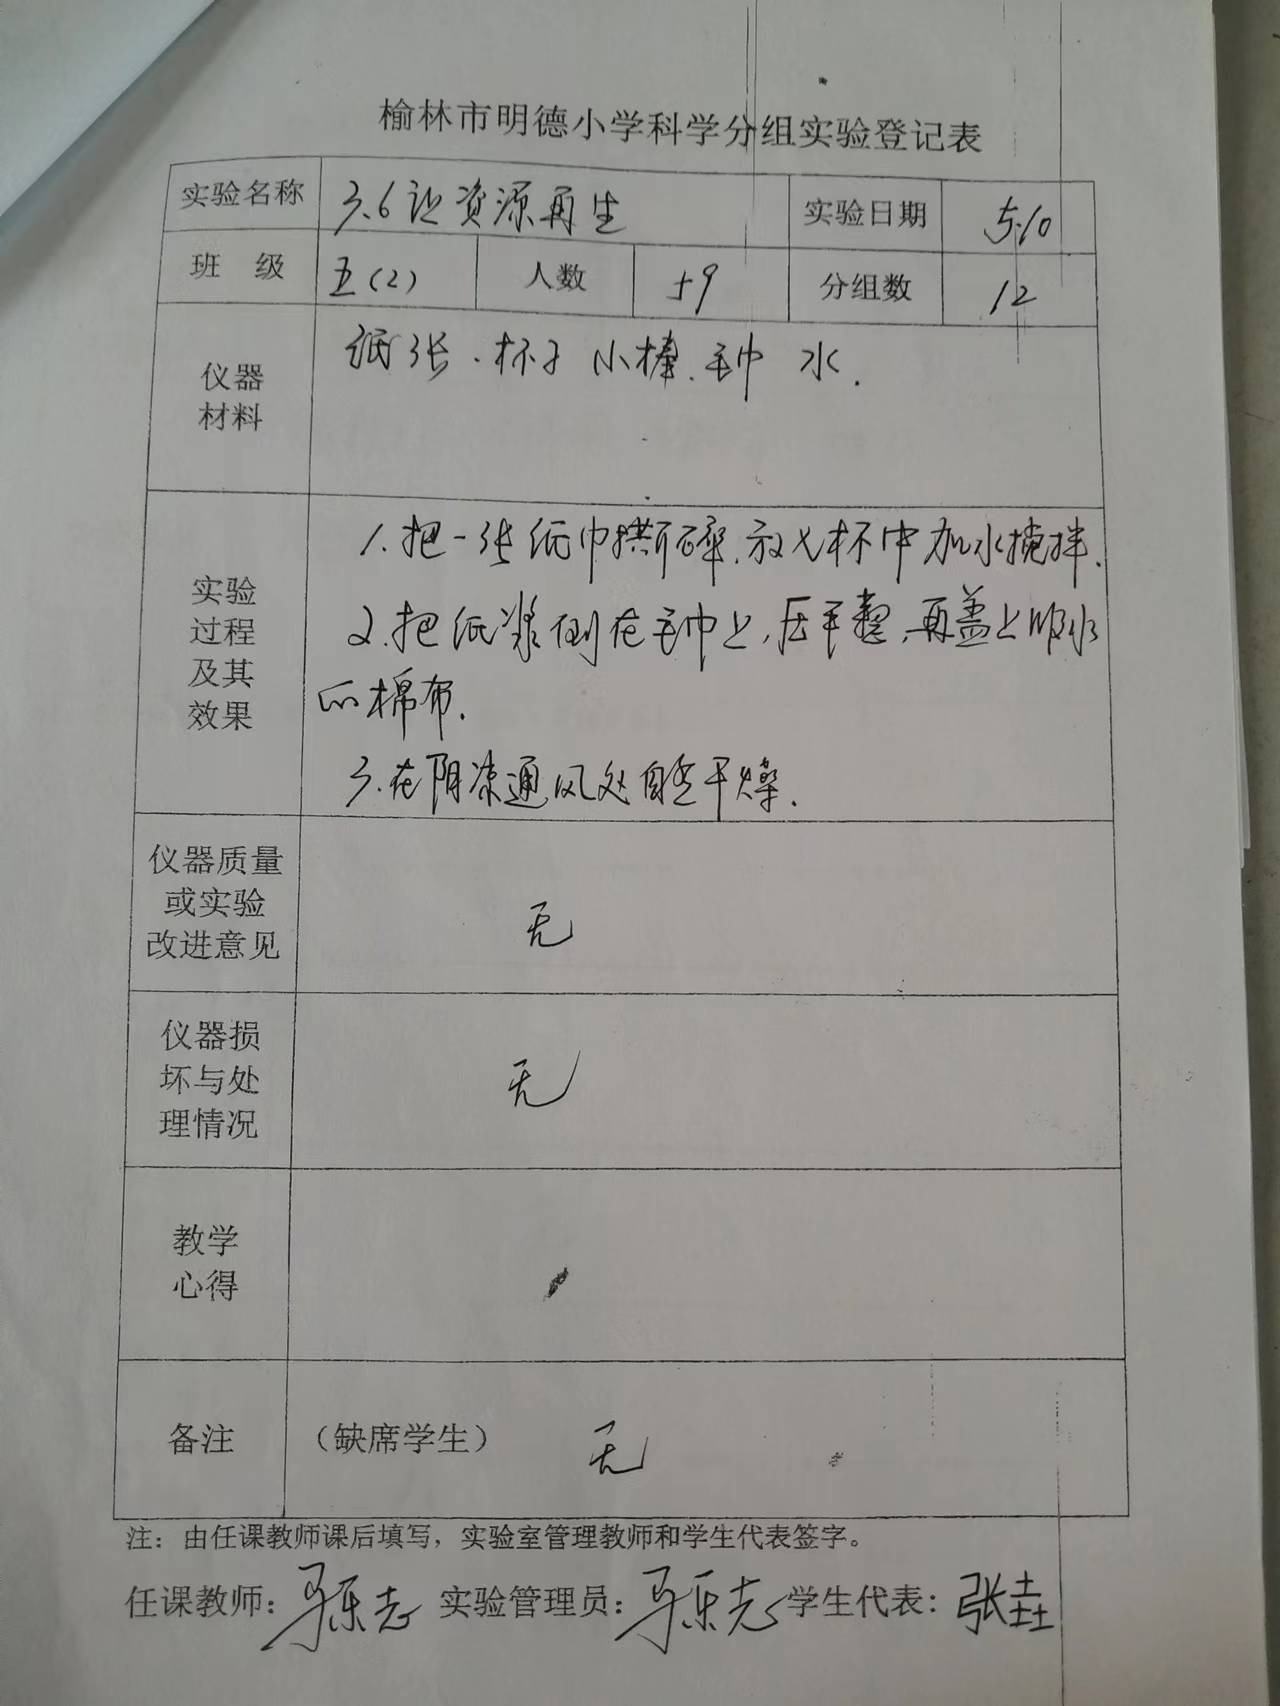 榆林市明德小学科学分组实验登记表
实验名称 3.6让资源再生 实验日期 5.10
班 级 五(2) 人数 59 分组数 12
仪器
材料
纸张、杯子 小棒、毛巾 水.
实验
过程
及其
效果
1.把一张纸巾撕碎,放入杯中加水搅拌.
2.把纸浆倒在毛巾上,压平整,再盖上吸水
的棉布.
3.在阴凉通风处自然干燥.
仪器质量
或实验
改进意见
无
仪器损
坏与处
理情况
无
教学
心得
备注 (缺席学生) 无
注:由任课教师课后填写,实验室管理教师和学生代表签字。
任课教师:马乐志 实验管理员:马乐志 学生代表:张垚